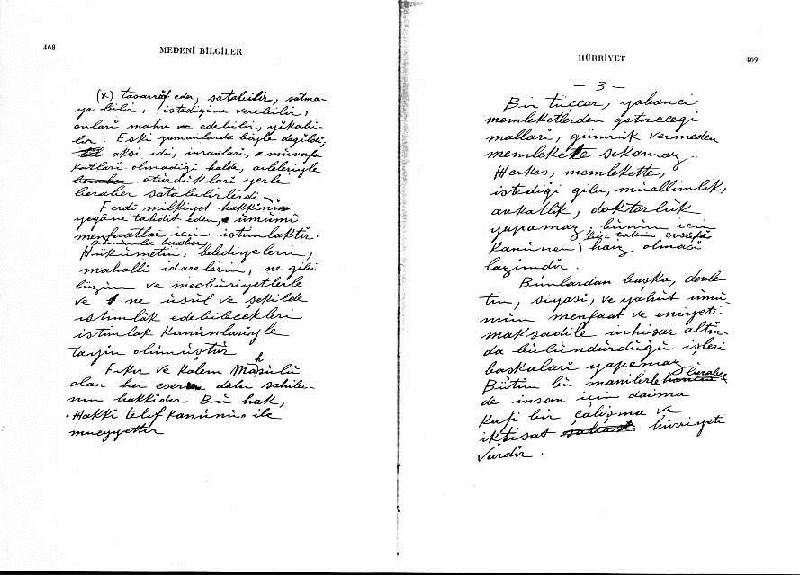 468
MEDENİ BİLGİLER
(x) tasarruf eder, satabilir, satma-
yabilir, istediğine verebilir,
onları mahv ve edebilir, yıkabi-
lir. Eski zamanlarda böyle değildi,
aksi idi, insanları,
katları olmadığı halde, aileleriyle
oturdukları yerle
beraber satabilirlerdi.
Ferdi mülkiyet hakkının
yegâne tahdit eden, ümümî
menfaatler için istimlaktir.
Hükûmetin, belediyelerin,
mahallî idarelerin, ne gibi
lüzum ve mecburiyetlerle
ve ne usul ve şekilde
istimlâk edebilecekleri
istimlâk kanunlariyle
tayin olunmuştur
Fikir ve kalem Mahsulü
olan her eser dahi sahibi-
nin hakkıdır. Bu hak,
Hakkı telif kanunu ile
müeyyettir
HÜRRİYET
469
— 3 —
Bir tüccar, yabancı
memleketlerden getireceği
malları, gümrük vermeden
memlekete sokamaz.
Herkes, memlekette,
istediği gibi, muallimlik,
avkatlık, doktorluk
yapamaz bunun için
kanunen, haiz olması
lazımdır.
Bunlardan başka, devle-
tin, siyasi, ve yahut ümü-
mün menfaat ve emniyeti
maksadile inhisar altın-
da bulundurduğu işleri
başkaları yapamaz.
Bütün bu manilerle beraber
de insan için daima
kafi bir çalışma ve
iktisat hürriyeti
vardır.